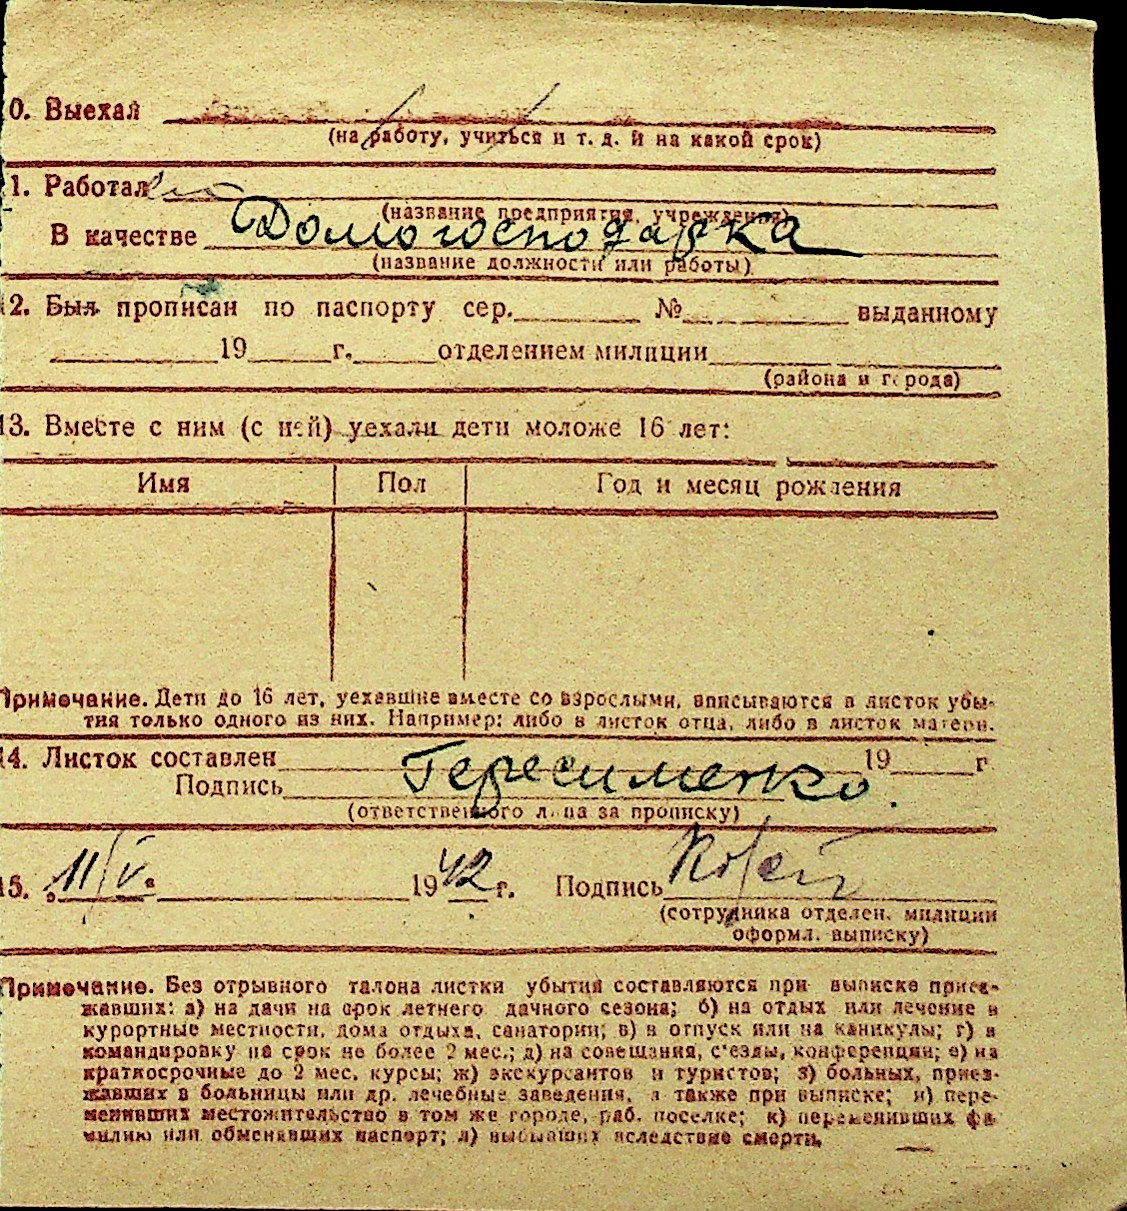 0. Выехал
(на работу, учиться и т. д. и на какой срок)
1. Работал
(название предприятия, учреждения)
В качестве Домогосподарка
(название должности или работы)
12. Был прописан по паспорту сер. № выданному
19 г. отделением милиции
(района и города)
13. Вместе с ним (с ней) уехали дети моложе 16 лет:
Имя Пол Год и месяц рождения
Примечание. Дети до 16 лет, уехавшие вместе со взрослыми, вписываются в листок убы-
тия только одного из них. Например: либо в листок отца, либо в листок матери.
14. Листок составлен 19 г
Подпись Гересименко.
(ответственного лица за прописку)
15. „11/V“ 1942 г. Подпись
(сотрудника отделен. милиции
оформл. выписку)
Примечание. Без отрывного талона листки убытия составляются при выписке приез-
жавших: а) на дачи на срок летнего дачного сезона; б) на отдых или лечение в
курортные местности, дома отдыха, санатории; в) в отпуск или на каникулы; г) в
командировку на срок не более 2 мес.; д) на совещания, с'езды, конференции; е) на
краткосрочные до 2 мес. курсы; ж) экскурсантов и туристов; з) больных, приез-
жавших в больницы или др. лечебные заведения, а также при выписке; и) пере-
менивших местожительство в том же городе, раб. поселке; к) переменивших фа
милию или обменявших паспорт; л) выбывших вследствие смерти.